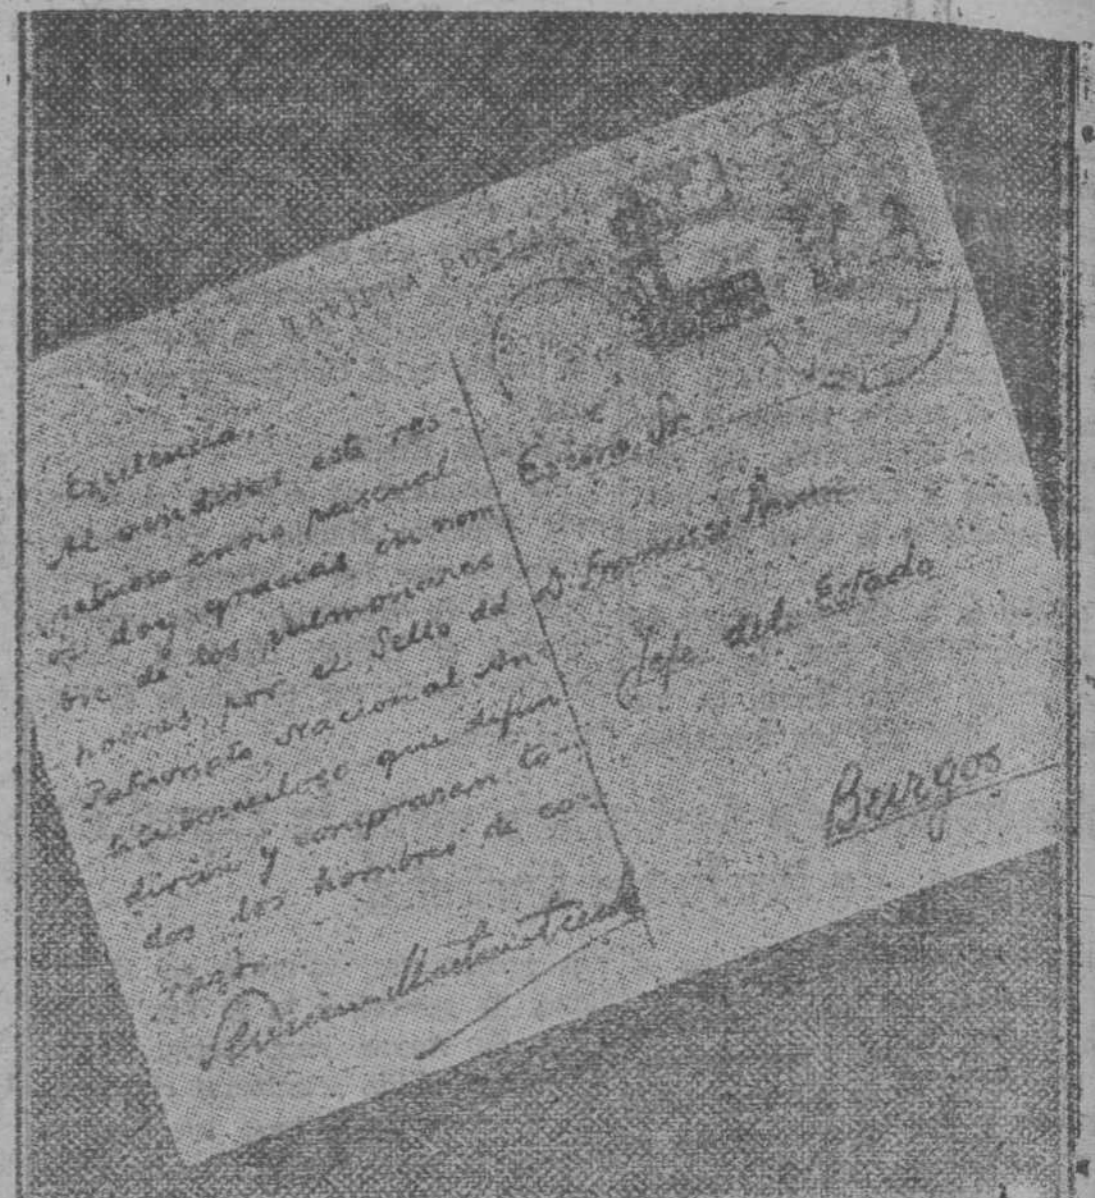 TARJETA POSTAL
Excelencia:
Al enviaros este res-
petuoso envio pascual
os doy gracias en nom
bre de los pulmoniares
pobres, por el Sello del
Patronato Nacional An-
tituberculoso que difun
dirán y comprarán to-
dos los hombres de co-
razón.
Excmo. Sr.
D. Francisco Franco
Jefe del Estado
Burgos